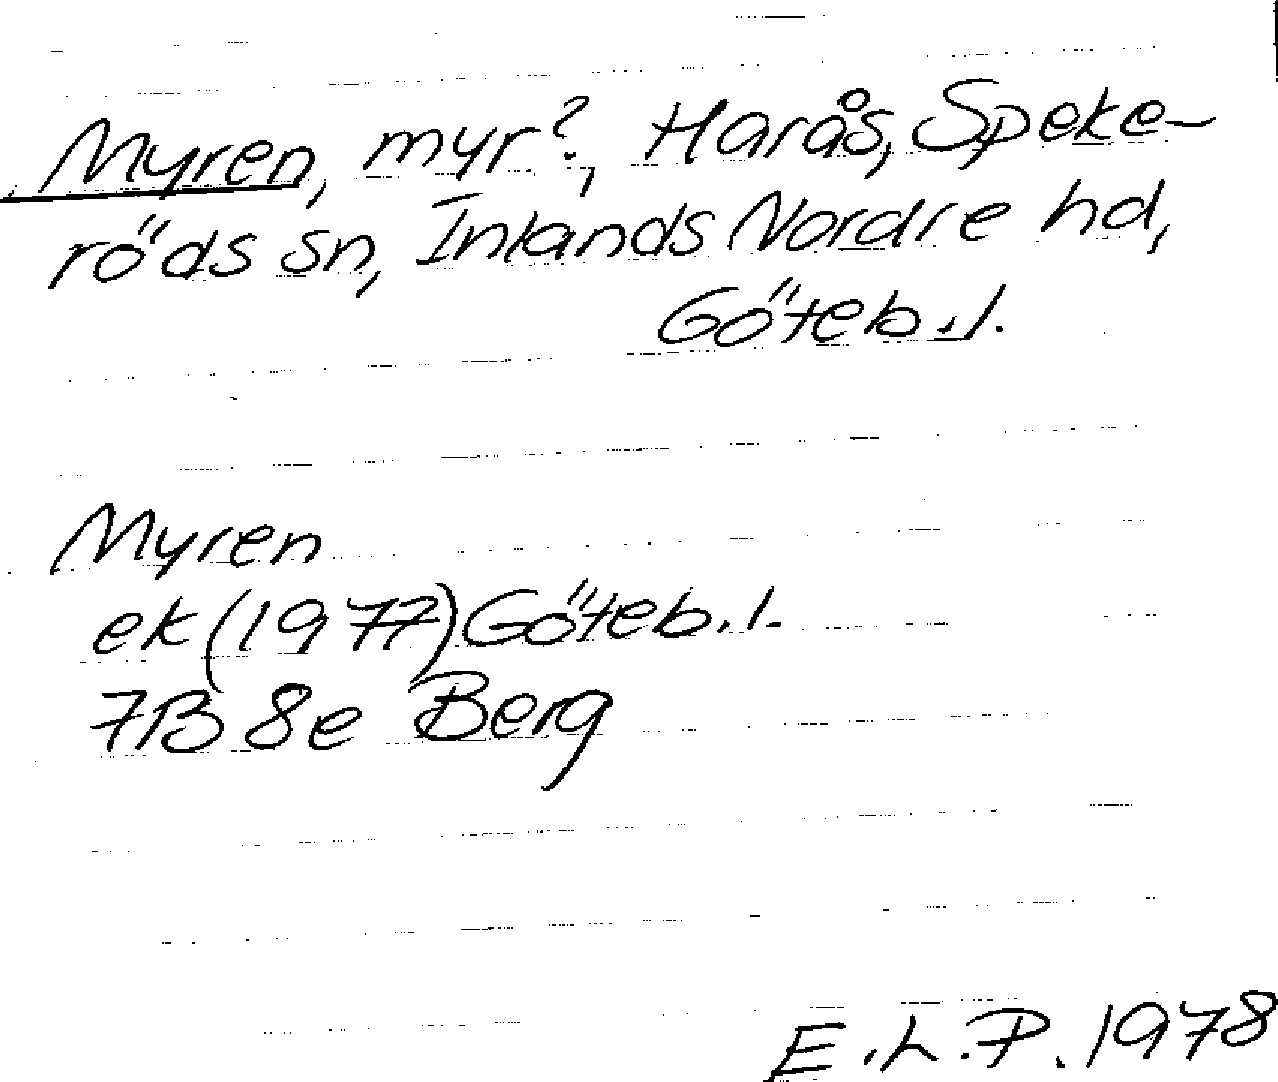 Myren, myr?, Harås, Speke-
röds sn, Inlands Nordre hd,
Göteb.l.
Myren
ek (1977) Göteb.l.
7B 8e Berg
E.L.P. 1978